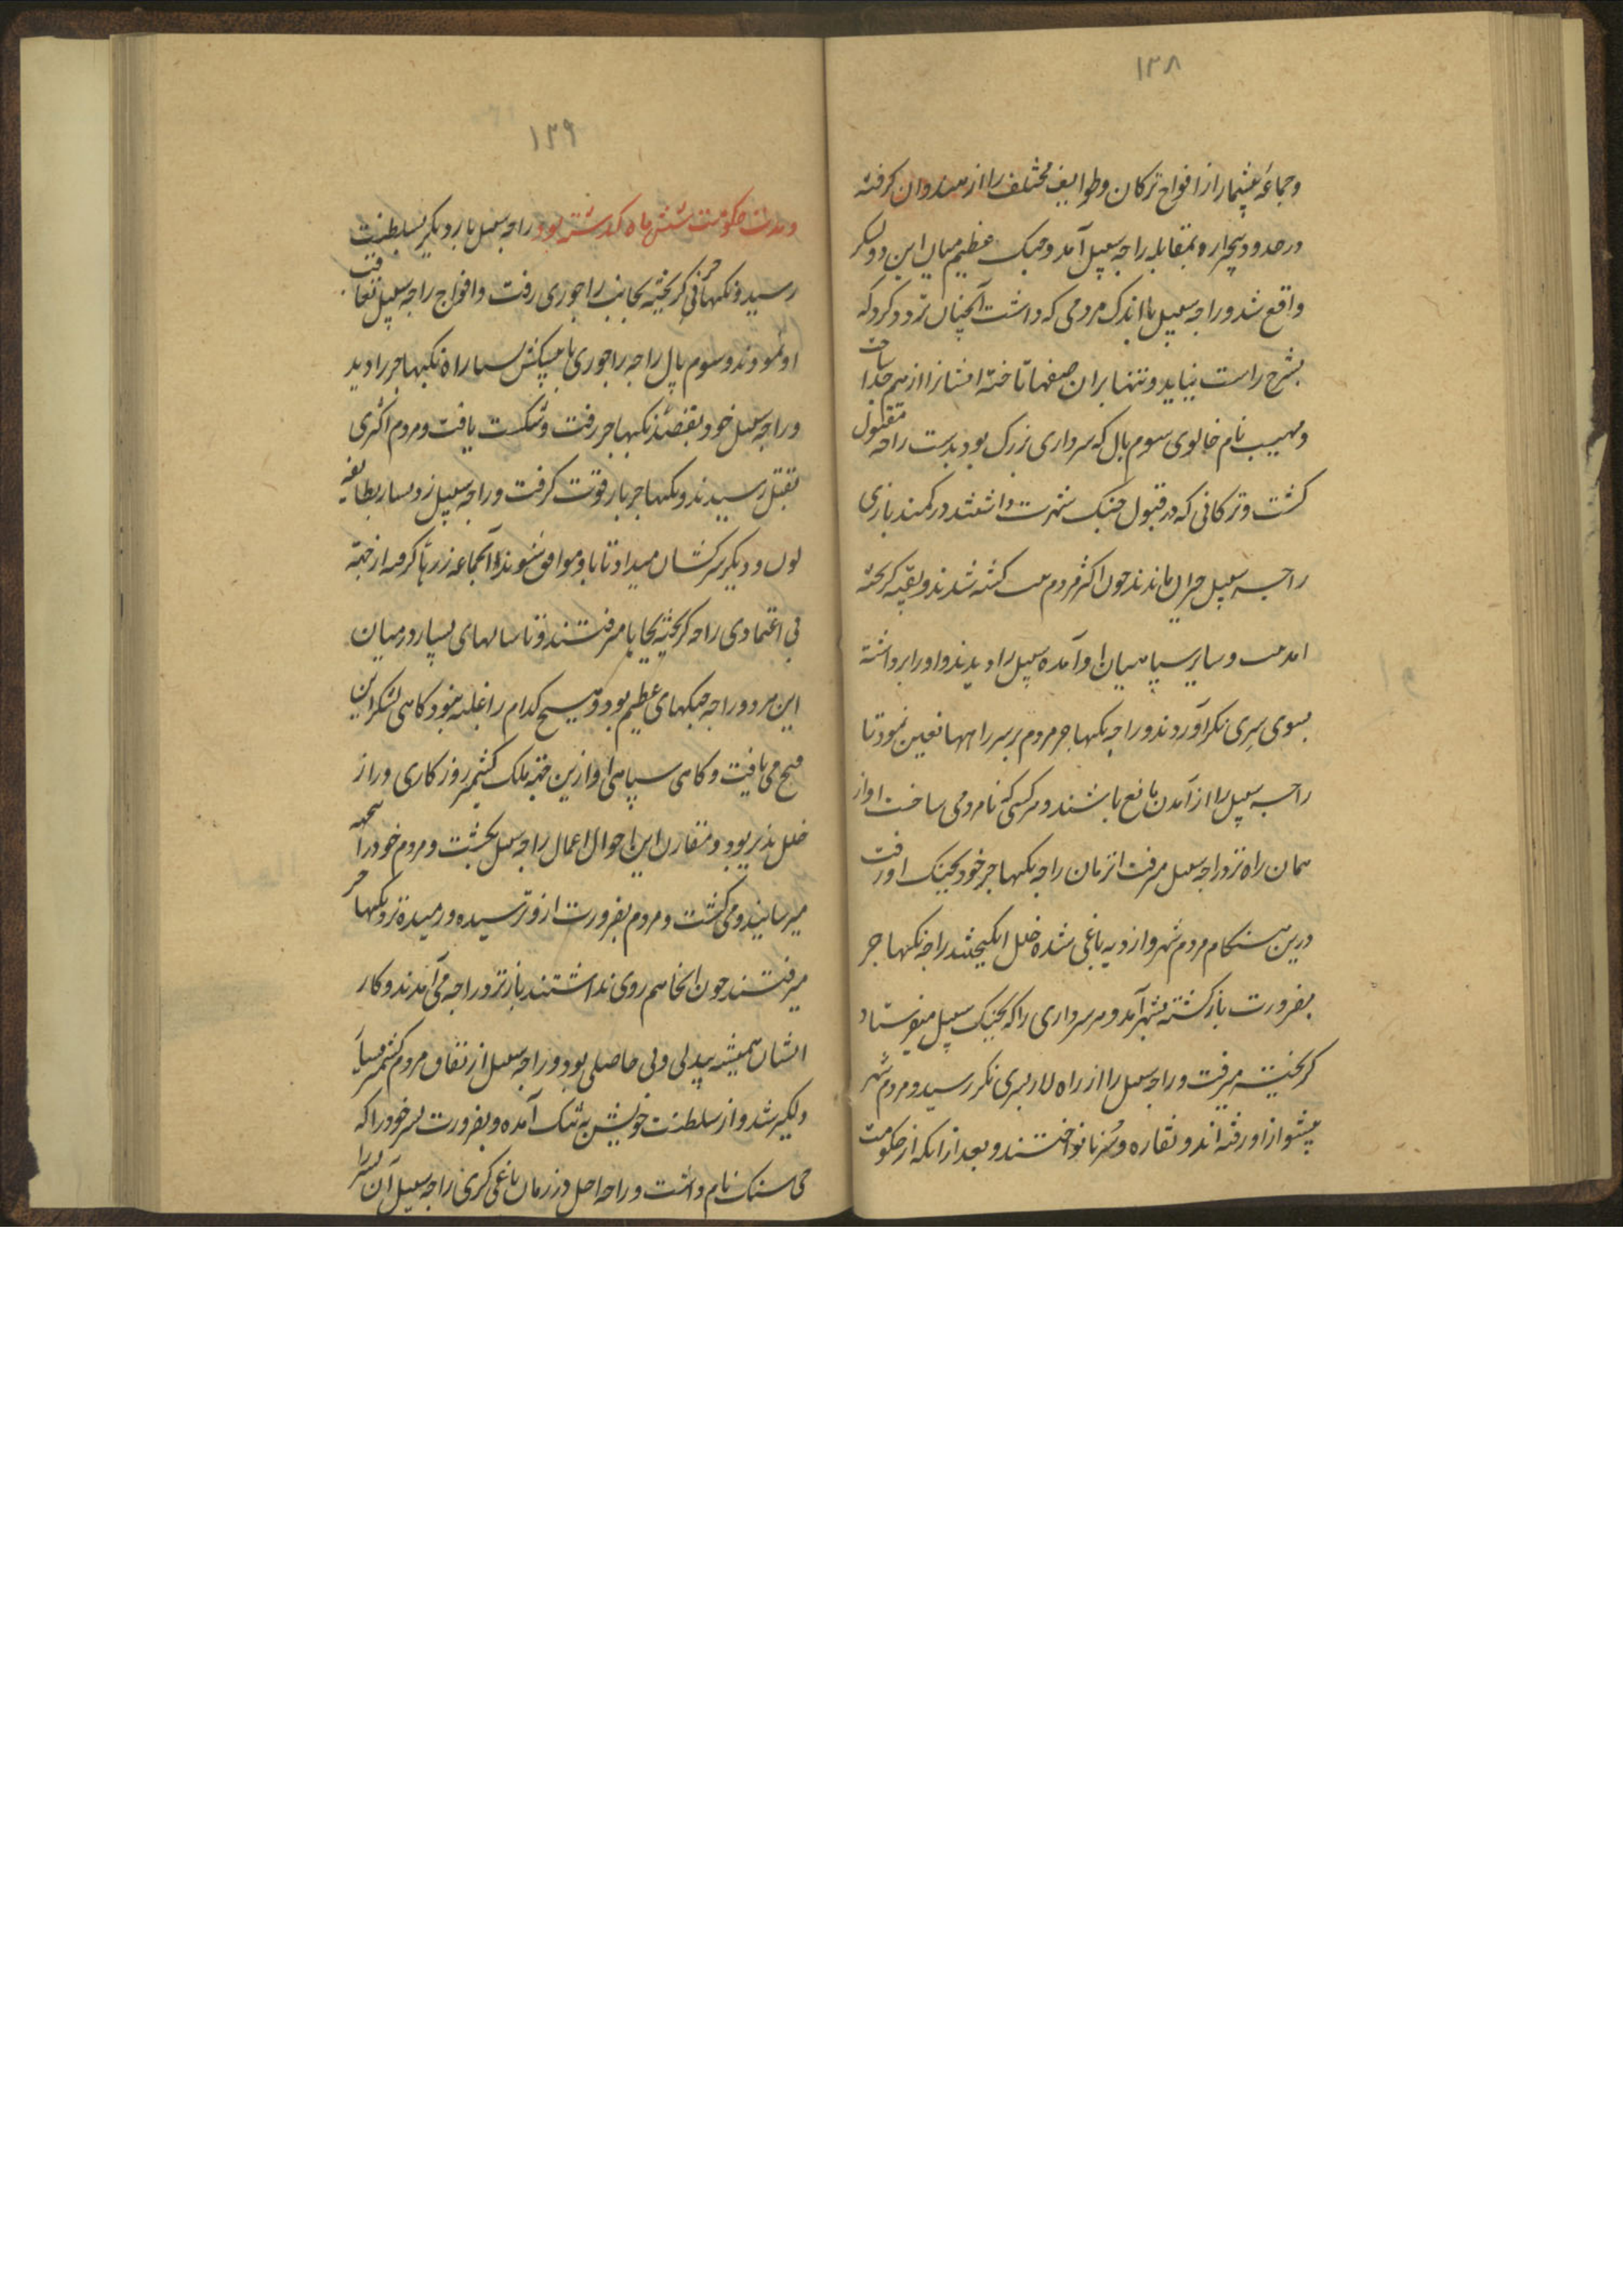 ١٣٨
وجماعهٔ بیشمار از افواج ترکان وطوایف مختلف را از هندوان کرفته
در حدود بیجاره وبمقابله راجه سهیل آمد وجنک عظیم میان این دو لشکر
واقع شد وراجه سهیل با اندک مردمی که داشت آنچنان تردد کرد که
بشرح راست نیاید وتنها بران صفها تاخته ایشانرا از هم جدا ساخت
و نام خالوی سوم پال که سرداری بزرک بود بدست راجه مقتول
کشت وترکانی که در قبول جنک شهرت داشتند در کمند بازی
راجه سهیل حیران ماندند چون اکثر مردم کشته شدند وبقیه کریخته
وسایر سپاهیان او آمده سهیل را دیدند واو را برداشته
بسوی سری نکر آوردند وراجه بکهاجر مردم بر سر راهها تعین نمود تا
راجه سهیل را از آمدن مانع باشند وهر کسی که نامردمی ساخت او از
همان راه نزد راجه سهیل میرفت انزمان راجه بکهاجر خود بجنک او رفت
درین هنکام مردم شهر واز دیه یاغی شده خلل انکیختند راجه بکهاجر
بضرورت بازکشته بشهر آمد وهر سرداری را که بجنک سهیل میفرستاد
کریخته میرفت وراجه سهیل را از راه لار بسری نکر رسید ومردم شهر
پیشواز او رفته اند ونقاره وسرنا نواختند وبعد از انکه از حکومت
١٣٩
ومدت حکومت شش ماه کذشته بود راجه سهیل بار دیکر بسلطنت
رسید وبکهاجر کریخته بجانب راجوری رفت وافواج راجه سهیل تعاقب
او نمودند وسوم پال راجه راجوری با پیشکش بسیار راه بکهاجر را دید
وراجه سهیل خود بقصد بکهاجر رفت وشکست یافت ومردم اکثری
بقتل رسیدند وبکهاجر باز قوت کرفت وراجه سهیل زر بسیار بطایفه
لون ودیکر سرکشان میداد تا با او موافق شوند وآنجماعه زرها کرفته از جهة
بی اعتمادی راجه کریخته بجابا میرفتند وتا سالهای بسیار در میان
این هر دو راجه جنکهای عظیم بود وهیچ کدام را غلبه نبود کاهی لشکر این
فتح می یافت وکاهی سپاهی او ازین جهة ملک کشمیر روز کاری دراز
خلل پذیر بود ومقارن این احوال اعمال راجه سهیل بکشت ومردم خود را
میرسانید ومی کشت ومردم بضرورت ازو ترسیده ورمیده نزد بکهاجر
میرفتند چون انجا هم روی نداشتند باز نزد راجه می آمدند وکار
ایشان همیشه بیدلی وبی حاصلی بود وراجه سهیل از نفاق مردم کشمیر بسیار
دلکیر شد واز سلطنت خویش به تنک آمده وبضرورت پسر خود را که
جی سنک نام داشت وراجه در زمان یاغی کری راجه سهیل آن پسر را